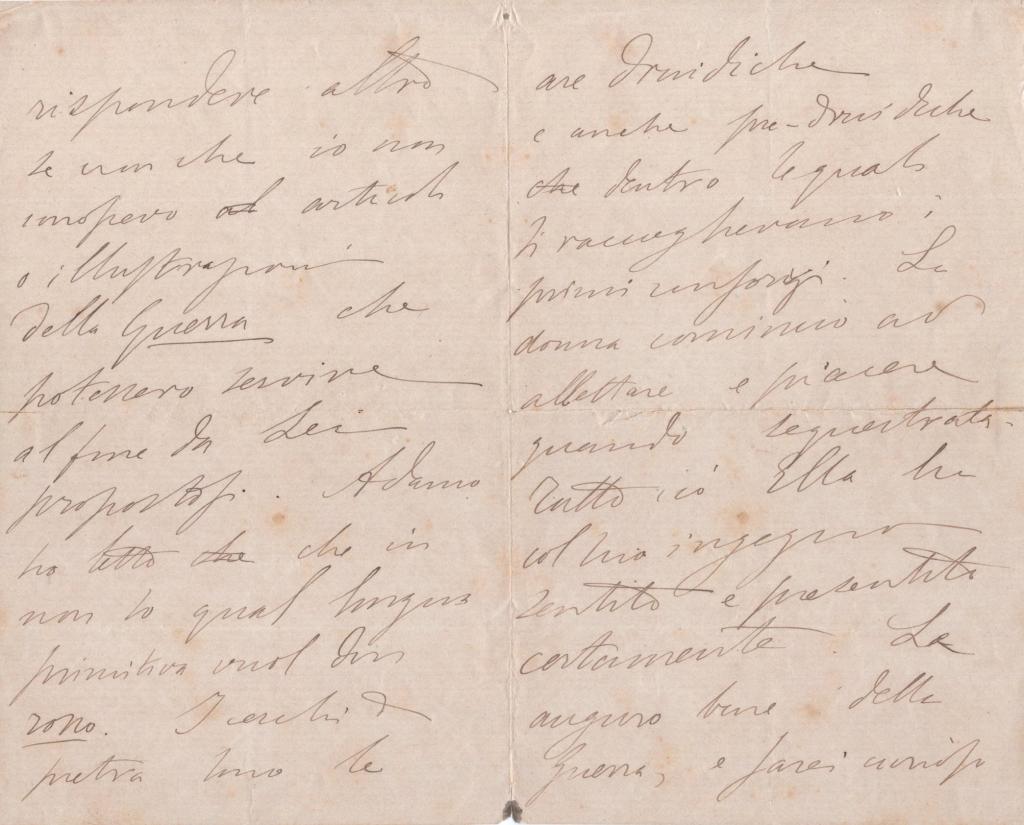 rispondere altro
se non che io non
conoscevo articoli
o illustrazioni
della Guerra che
potessero servire
al fine da Lei
propostosi. Adamo
ho letto che che in
non so qual lingua
primitiva vuol dire
rosso. I cerchi di
pietra sono le
are druidiche
e anche pre-druidiche
che dentro le quali
si raccoglievano i
primi consorzi. La
donna cominciò ad
allettare e piacere
quando sequestrata.
Tutto ciò Ella ha
col suo ingegno
sentito e presentito
certamente. La
auguro bene della
Guerra, e sarei